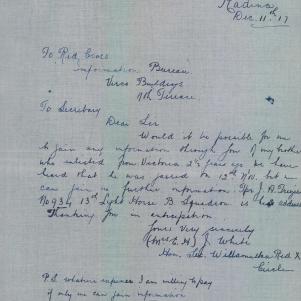 Kadina
Dec. 11th 17
To Red Cross
information Bureau
Verco Buildings
Nth Terrace
To Secretary
Dear Sir
Would it be possible for me
to gain any information through you of my brother
who enlisted from Victoria 2½ years ago. We have
heard that he was passed on 12th Nov. but we
can gain no further information. Tpr J. A.
No 934 13th Light Horse B Squadron is his address
Thanking you in anticipation.
Yours Very sincerely
(Mrs E. H.) J. White
Hon. Sec. Willamulka Red X
Circle
P.S. whatever expenses I am willing to pay
if only we can gain information